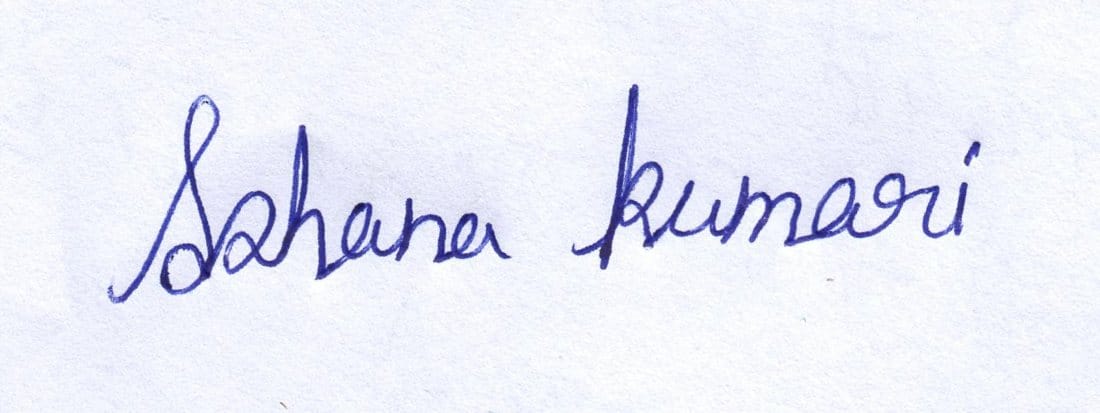 Sahana kumari